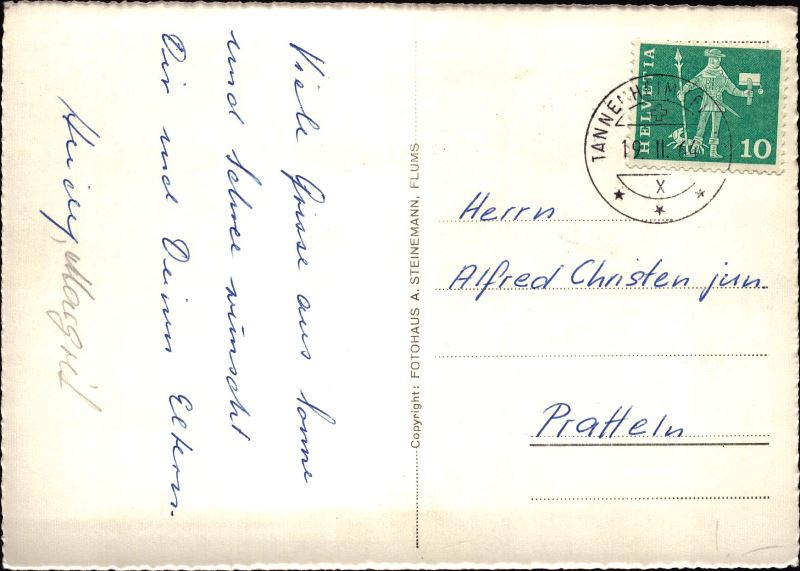 Viele Grüsse aus Sonne
und Schnee wünscht
Dir und Deinen Eltern.
Margrit
Copyright: FOTOHAUS A. STEINEMANN, FLUMS
HELVETIA
10
TANNENHEIM
19. II.
X
Herrn
Alfred Christen jun.
Pratteln